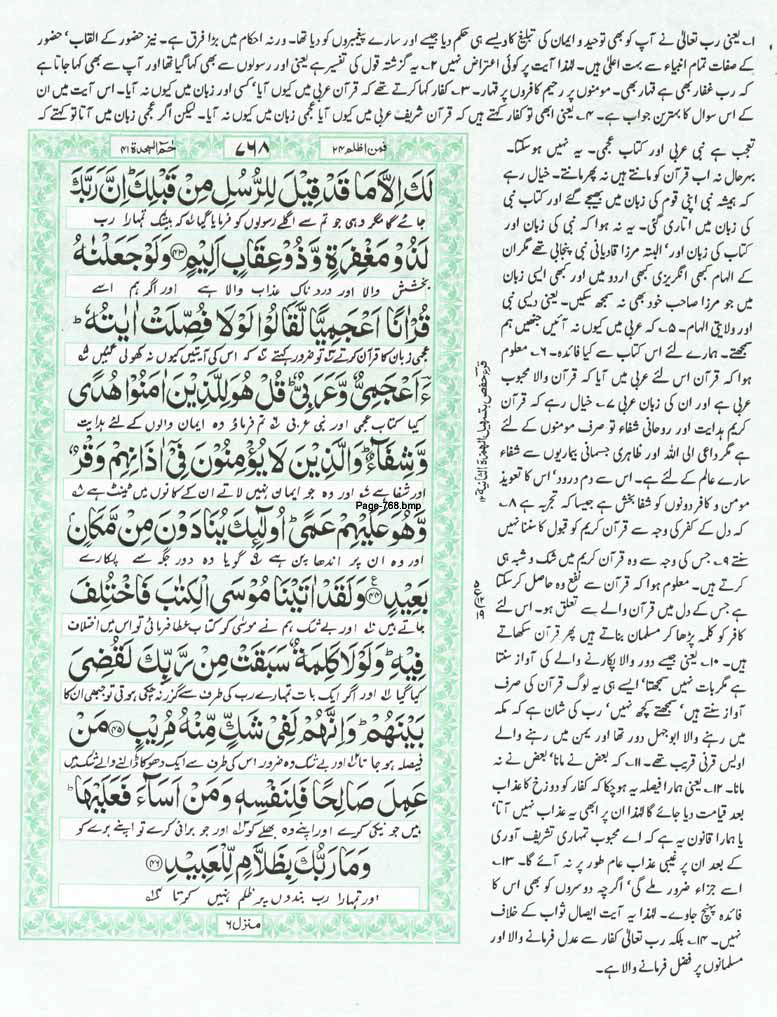 ۱۔ یعنی رب تعالیٰ نے آپ کو بھی توحید و ایمان کی تبلیغ کا ویسے ہی حکم دیا جیسے اور سارے پیغمبروں کو دیا تھا۔ ورنہ احکام میں بڑا فرق ہے۔ نیز حضور کے القاب' حضور
کے صفات تمام انبیاء سے بہت اعلیٰ ہیں۔ لہٰذا آیت پر کوئی اعتراض نہیں ۲۔ یہ گزشتہ قول کی تفسیر ہے یعنی اور رسولوں سے بھی کہا گیا تھا اور آپ سے بھی کہا جاتا ہے
کہ رب غفار بھی ہے قہار بھی۔ مومنوں پر رحیم کافروں پر قہار۔ ۳۔ کفار کہا کرتے تھے کہ قرآن عربی میں کیوں آیا' کسی اور زبان میں کیوں نہ آیا۔ اس آیت میں ان
کے اس سوال کا بہترین جواب ہے۔ ۴۔ یعنی ابھی تو کفار کہتے ہیں کہ قرآن شریف عربی میں کیوں آیا عجمی زبان میں کیوں نہ آیا۔ لیکن اگر عجمی زبان میں آتا تو کہتے کہ
فمن اظلم ۲۴
۷۶۸
حٰمٓ السجدۃ ۴۱
لَكَ اِلَّا مَا قَدْ قِيْلَ لِلرُّسُلِ مِنْ قَبْلِكَ ؕ اِنَّ رَبَّكَ
جائے گا مگر وہی جو تم سے اگلے رسولوں کو فرمایا گیا کہ بیشک تمہارا رب
لَذُوْ مَغْفِرَةٍ وَّذُوْ عِقَابٍ اَلِيْمٍ ﴿۴۳﴾ وَلَوْ جَعَلْنٰهُ
بخشش والا اور دردناک عذاب والا ہے اور اگر ہم اسے
قُرْاٰنًا اَعْجَمِيًّا لَّقَالُوْا لَوْلَا فُصِّلَتْ اٰيٰتُهٗ ؕ
عجمی زبان کا قرآن کرتے تو ضرور کہتے کہ اس کی آیتیں کیوں نہ کھولی گئیں
ءَؔاَعْجَمِيٌّ وَّعَرَبِيٌّ ؕ قُلْ هُوَ لِلَّذِيْنَ اٰمَنُوْا هُدًى
کیا کتاب عجمی اور نبی عربی تم فرماؤ وہ ایمان والوں کے لئے ہدایت
وَّشِفَآءٌ ؕ وَالَّذِيْنَ لَا يُؤْمِنُوْنَ فِيْٓ اٰذَانِهِمْ وَقْرٌ
اور شفا ہے اور وہ جو ایمان نہیں لاتے ان کے کانوں میں ٹینٹ ہے
Page-768.bmp
وَّهُوَ عَلَيْهِمْ عَمًى ؕ اُولٰٓئِكَ يُنَادَوْنَ مِنْ مَّكَانٍۢ
اور وہ ان پر اندھا پن ہے گویا وہ دور جگہ سے پکارے
بَعِيْدٍ ﴿۴۴﴾ وَلَقَدْ اٰتَيْنَا مُوْسَى الْكِتٰبَ فَاخْتُلِفَ
جاتے ہیں اور بے شک ہم نے موسیٰ کو کتاب عطا فرمائی تو اس میں اختلاف
فِيْهِ ؕ وَلَوْلَا كَلِمَةٌ سَبَقَتْ مِنْ رَّبِّكَ لَقُضِيَ
کیا گیا اور اگر ایک بات تمہارے رب کی طرف سے گزر نہ چکی ہوتی تو جبھی ان کا
بَيْنَهُمْ ؕ وَاِنَّهُمْ لَفِيْ شَكٍّ مِّنْهُ مُرِيْبٍ ﴿۴۵﴾ مَنْ
فیصلہ ہو جاتا اور بے شک وہ ضرور اس کی طرف سے ایک دھوکا ڈالنے والے شک میں
عَمِلَ صَالِحًا فَلِنَفْسِهٖ وَمَنْ اَسَآءَ فَعَلَيْهَا ؕ
ہیں جو نیکی کرے اور اپنے وہ بھلے کو اور جو برائی کرے تو اپنے برے کو
وَمَا رَبُّكَ بِظَلَّامٍ لِّلْعَبِيْدِ ﴿۴۶﴾
اور تمہارا رب بندوں پر ظلم نہیں کرتا
منزل ۶
تعجب ہے نبی عربی اور کتاب عجمی۔ یہ نہیں ہوسکتا۔
بہرحال نہ اب قرآن کو مانتے ہیں نہ پھر مانتے۔ خیال رہے
کہ ہمیشہ نبی اپنی قوم کی زبان میں بھیجے گئے اور کتاب نبی
کی زبان میں اتاری گئی۔ یہ نہ ہوا کہ نبی کی زبان اور
کتاب کی زبان اور' البتہ مرزا قادیانی نبی پنجابی تھے مگر ان
کے الہام کبھی انگریزی کبھی اردو میں اور کبھی ایسی زبان
میں جو مرزا صاحب خود بھی نہ سمجھ سکیں۔ یعنی دیسی نبی
اور ولایتی الہام۔ ۵۔ کہ عربی میں کیوں نہ آئیں جنھیں ہم
سمجھتے۔ ہمارے لئے اس کتاب سے کیا فائدہ۔ ۶۔ معلوم
ہوا کہ قرآن اس لئے عربی میں آیا کہ قرآن والا محبوب
عربی ہے اور ان کی زبان عربی ۷۔ خیال رہے کہ قرآن
کریم ہدایت اور روحانی شفاء تو صرف مومنوں کے لئے
ہے مگر داعی الی اللہ اور ظاہری جسمانی بیماریوں سے شفاء
سارے عالم کے لئے ہے۔ اس سے دم درود' اس کا تعویذ
مومن و کافر دونوں کو شفا بخش ہے جیسا کہ تجربہ ہے ۸۔
کہ دل کے کفر کی وجہ سے وہ قرآن کریم کو قبول کا سننا نہیں
سنتے ۹۔ جس کی وجہ سے وہ قرآن کریم میں شک و شبہ ہی
کرتے ہیں۔ معلوم ہوا کہ قرآن سے نفع وہ حاصل کرسکتا
ہے جس کے دل میں قرآن والے سے تعلق ہو۔ اس لئے
کافر کو کلمہ پڑھا کر مسلمان بناتے ہیں پھر قرآن سکھاتے
ہیں۔ ۱۰۔ یعنی جیسے دور والا پکارنے والے کی آواز سنتا
ہے مگر بات نہیں سمجھتا' ایسے ہی یہ لوگ قرآن کی صرف
آواز سنتے ہیں' سمجھتے کچھ نہیں' رب کی شان ہے کہ مکہ
میں رہنے والا ابوجہل دور تھا اور یمن میں رہنے والے
اویس قرنی قریب تھے۔ ۱۱۔ کہ بعض نے مانا' بعض نے نہ
مانا۔ ۱۲۔ یعنی ہمارا فیصلہ یہ ہوچکا کہ کفار کو دوزخ کا عذاب
بعد قیامت دیا جائے گا لہٰذا ان پر ابھی یہ عذاب نہیں آتا'
یا ہمارا قانون یہ ہے کہ اے محبوب تمہاری تشریف آوری
کے بعد ان پر غیبی عذاب عام طور پر نہ آئے گا۔ ۱۳۔
اسے جزاء ضرور ملے گی' اگرچہ دوسروں کو بھی اس کا
فائدہ پہنچ جاوے۔ لہٰذا یہ آیت ایصال ثواب کے خلاف
نہیں۔ ۱۴۔ بلکہ رب تعالیٰ کفار سے عدل فرمانے والا اور
مسلمانوں پر فضل فرمانے والا ہے۔